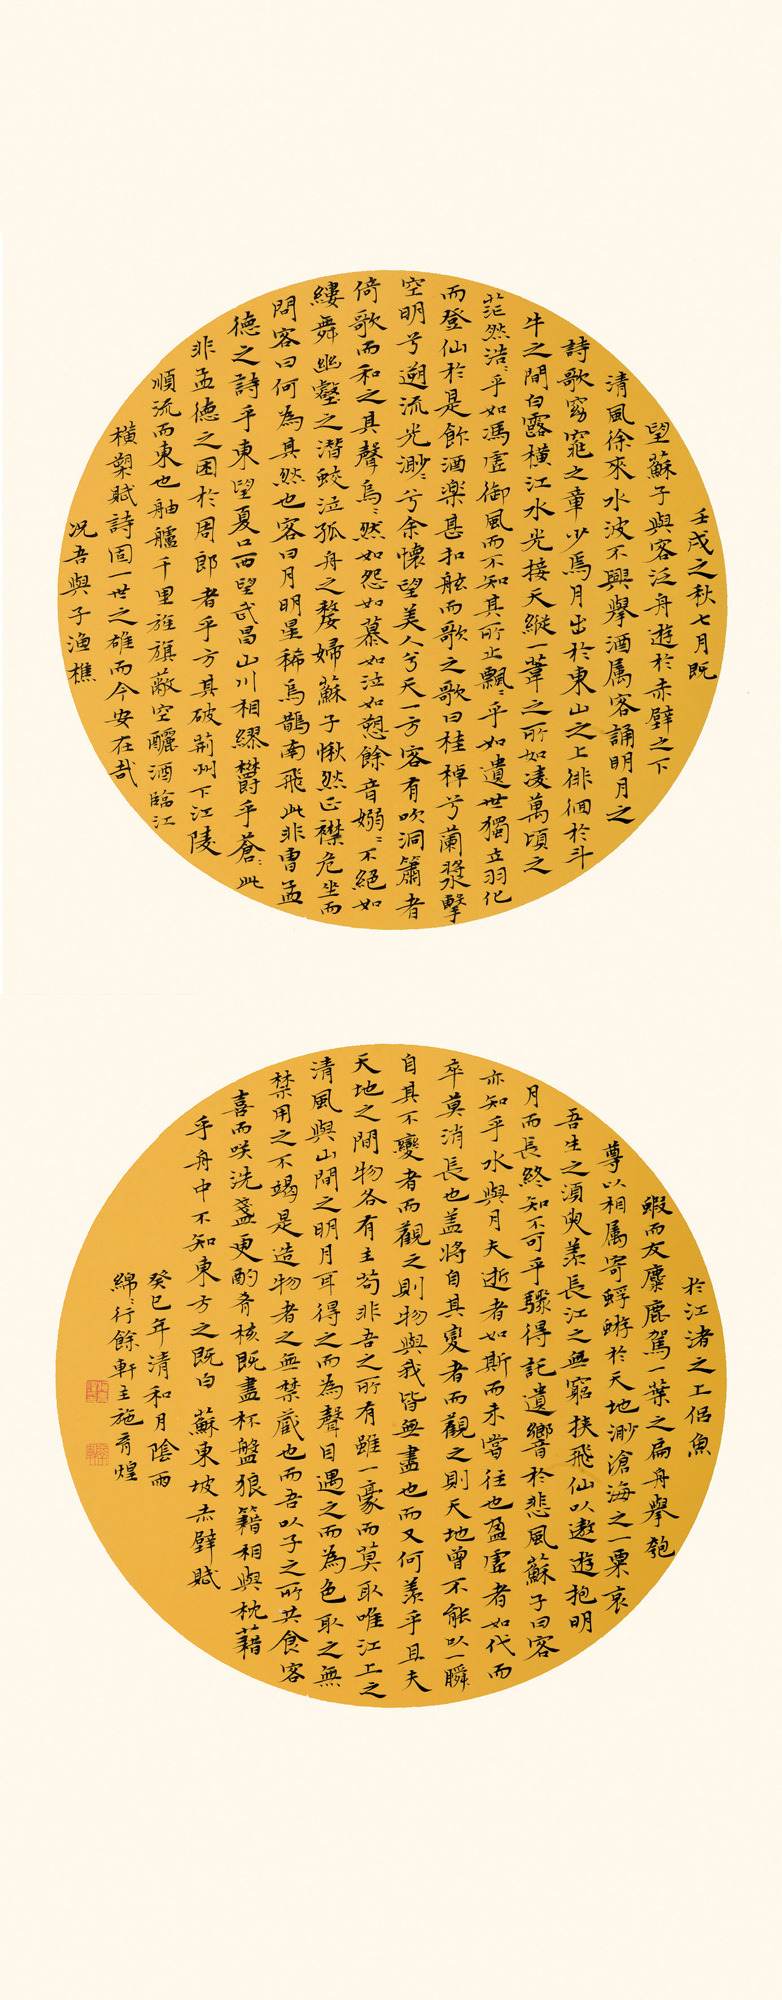 壬戌之秋七月既
望蘇子與客泛舟遊於赤壁之下
清風徐來水波不興擧酒属客誦明月之
詩歌窈窕之章少焉月出於東山之上徘徊於斗
牛之間白露橫江水光接天縱一葦之所如凌萬頃之
茫然浩〻乎如馮虛御風而不知其所止飄〻乎如遺世獨立羽化
而登仙於是飲酒楽甚扣舷而歌之歌曰桂棹兮蘭漿擊
空明兮遡流光渺〻兮余懷望美人兮天一方客有吹洞簫者
倚歌而和之其聲烏〻然如怨如慕如泣如愬餘音嫋〻不絕如
縷舞幽壑之潛蛟泣孤舟之嫠婦蘇子愀然正襟危坐而
問客曰何為其然也客曰月明星稀烏鵲南飛此非曹孟
德之詩乎東望夏口西望武昌山川相繆欝乎蒼〻此
非孟德之困於周郎者乎方其破荊州下江陵
順流而東也舳艫千里旌旗蔽空釃酒臨江
橫槊賦詩固一世之雄而今安在哉
況吾與子漁樵
於江渚之上侶魚
蝦而友麋鹿駕一葉之扁舟擧匏
尊以相属寄蜉蝣於天地渺滄海之一粟哀
吾生之須臾羨長江之無窮挾飛仙以遨遊抱明
月而長終知不可乎驟得託遺響於悲風蘇子曰客
亦知乎水與月夫逝者如斯而未嘗往也盈虛者如代而
卒莫消長也盖將自其變者而觀之則天地曾不能以一瞬
自其不變者而觀之則物與我皆無盡也而又何羨乎且夫
天地之間物各有主苟非吾之所有雖一豪而莫取唯江上之
清風與山間之明月耳得之而為聲目遇之而為色取之無
禁用之不竭是造物者之無禁藏也而吾以子之所共食客
喜而咲洗盞更酌肴核既盡杯盤狼籍相與枕藉
乎舟中不知東方之既白 蘇東坡赤壁賦
癸巳年清和月陰雨
綿〻行餘軒主施育煌